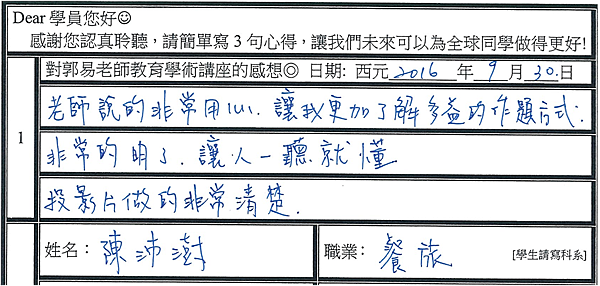 Dear 學員您好☺
感謝您認真聆聽，請簡單寫 3 句心得，讓我們未來可以為全球同學做得更好!
對郭易老師教育學術講座的感想◎ 日期: 西元 2016 年 9 月 30 日
1
老師說的非常用心. 讓我更加了解多益的作題方式.
非常的明了. 讓人一聽就懂
投影片做的非常清楚.
姓名： 陳沛澍 職業： 餐旅 [學生請寫科系]